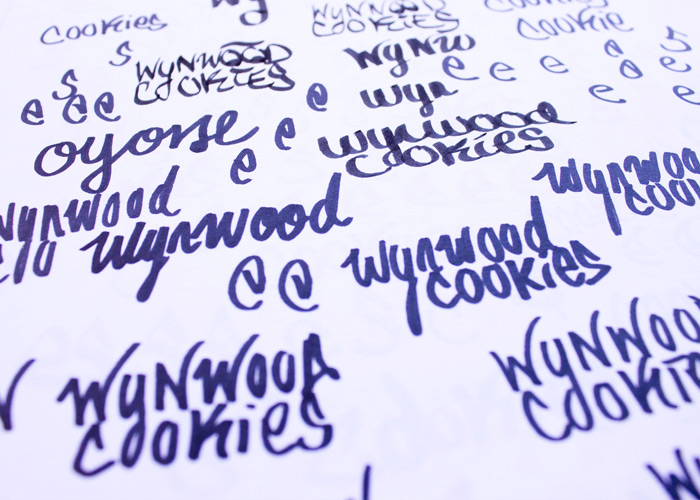 cookies
WYNWOOD
COOKIES
cookies
cookie
s
s
WYNWOOD
COOKIES
WYNW
e e e a e s
e e e e
wyn
e e
oyonse e e
wynwood
cookies
wynwood
wynwood
wynwood
cookies
e e
WYNWOOD
COOKIES
WYNWOO
COOKI